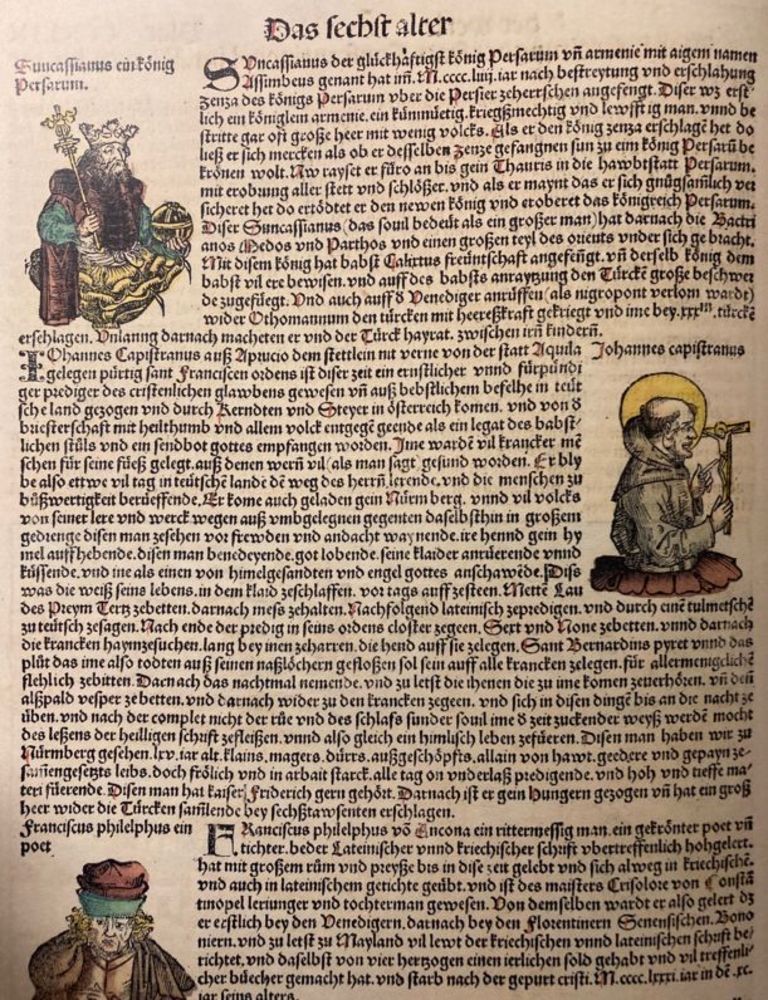 Das sechst alter
Suncassianus ein könig
Persarum.
SUncassianus der glückhäftigst könig Persarum vñ armenie mit aigem namen
Assimbeus genant hat im̃. M.cccc.liiij. iar nach bestreytung vnd erschlahung
zenza des königs Persarum vber die Persier zeherrschen angefengt. Diser wz erst
lich ein königlein armenie. ein künmüetig. kriegßmechtig vnd lewfftig man. vnnd be
stritte gar oft große heer mit wenig volcks. Als er den könig zenza erschlagẽ het do
ließ er sich mercken als ob er desselben Zenze gefangnen sun zu eim könig Persarũ be
krönen wolt. Nw rayset er füro an bis gein Thauris in die hawbtstatt Persarum.
mit erobung aller stett vnd schlößer. vnd als er maynt das er sich gnůgsam̃lich ver
sicheret het do ertödtet er den newen könig vnd eroberet das königreich Persarum.
Diser Suncassianus (das souil bedeüt als ein großer man) hat darnach die Bactri
anos Medos vnd Parthos vnd einen großen teyl des orients vnder sich gebracht.
Mit disem könig hat babst Calixtus freüntschafft angefengt. vñ derselb könig dem
babst vil ere bewisen. vnd auff des babsts anraytzung den Türckẽ große beschwer
de zugefüegt. Vnd auch auff d̕ Venediger anrüffen (als nigropont verlorn wardt)
wider Othomannum den türcken mit heereßkraft gekriegt vnd ime bey .xxx^m. türckẽ
erschlagen. Vnlanng darnach macheten er vnd der Türck hayrat. zwischen irñ kinderñ.
Johannes capistranus
IOhannes Capistranus auß Aprucio dem stettlein nit verne von der statt Aquila
gelegen pürtig sant Franciscen ordens ist diser zeit ein ernstlicher vnnd fürpündi
ger prediger des cristenlichen glawbens gewesen vñ auß bebstlichem befelhe in teüt
sche land gezogen vnd durch Kerndten vnd Steyer in österreich komen. vnd von d̕
briesterschaft mit heilthumb vnd allem volck entgegẽ geende als ein legat des babst-
lichen stůls vnd ein sendbot gottes empfangen worden. Ime wardẽ vil krancker mẽ
schen für seine füeß gelegt. auß denen werñ vil (als man sagt) gesund worden. Er bly
be also ettwe vil tag in teütschẽ landẽ dẽ weg des herrñ lerende. vnd die menschen zu
bůßwertigkeit berüeffende. Er kome auch geladen gein Nürmberg. vnnd vil volcks
von seiner lere vnd werck wegen auß vmbgelegnen gegenten daselbsthin in großem
gedrenge disen man zesehen vor frewden vnd andacht waynende. ire hennd gein hy
mel auffhebende. disen man benedeyende. got lobende. seine klaider anrüerende vnnd
küssende. vnd ine als einen von himelgesandten vnd engel gottes anschawẽde. Diss
was die weiß seins lebens. in dem klaid zeschlaffen. vor tags auff zesteen. Mettẽ Lau
des Preym Tertz zebetten. darnach mess zehalten. Nachfolgend lateinisch zepredigen. vnd durch einẽ tulmetschẽ
zu teütsch zesagen. Nach ende der predig in seins ordens closter zegeen. Sext vnd None zebetten. vnnd darnach
die krancken haymzesuchen. lang bey inen zeharren. die hend auff sie zelegen. Sant Bernardins pyret vnnd das
plůt das ime also todten auß seinen naßlöchern gefloßen sol sein auff alle krancken zelegen. für allermenigclichẽ
flehlich zebitten. Darnach das nachtmal nemende. vnd zu letst die ihenen die zu ime komen zeuerhörẽn. vñ denñ
alßpald vesper zebetten. vnd darnach wider zu den krancken zegeen. vnd sich in disen dingẽ bis an die nacht ze
üben. vnd nach der complet nicht der růe vnd des schlafs sunder souil ime d̕ zeit zuckender weyß werdẽ mocht
des leßens der heilligen schrift zefleißen. vnnd also gleich ein himlisch leben zefüeren. Disen man haben wir zu
Nürmberg gesehen. lxv. iar alt. klains. magers. dürrs. außgeschöpfts. allain von hawt. geedere vnd gepayn ze-
sam̃engesetzts leibs. doch frölich vnd in arbait starck. alle tag on vnderlaß predigende. vnd hoh vnd tieffe ma-
teri füerende. Disen man hat kaiser Friderich gern gehört. Darnach ist er gein Hungern gezogen vñ hat ein groß
heer wider die Türcken sam̃lende bey sechßtawsenten erschlagen.
Franciscus philelphus ein
poet
FRanciscus philelphus võ Ancona ein rittermessig man. ein gekrönter poet vñ
tichter. beder Lateinischer vnnd kriechischer schrift vbertreffenlich hohgelert.
hat mit großem rům vnd preyße bis in dise zeit gelebt vnd sich alweg in kriechischẽ.
vnd auch in lateinischem getichte geübt. vnd ist des maisters Crisolore von Constã
tinopel leriunger vnd tochterman gewesen. Von demselben wardt er also gelert dz
er erstlich bey den Venedigern. darnach bey den Florentinern Senensischen. Bono
niern. vnd zu letst zu Mayland vil lewt der kriechischen vnnd lateinischen schrift be/
richtet. vnd daselbst von vier hertzogen einen ierlichen sold gehabt vnd vil treffenli/
cher büecher gemacht hat. vnd starb nach der gepurt cristi. M.cccc.lxxxi. iar in dẽ .xc.
iar seins alters.